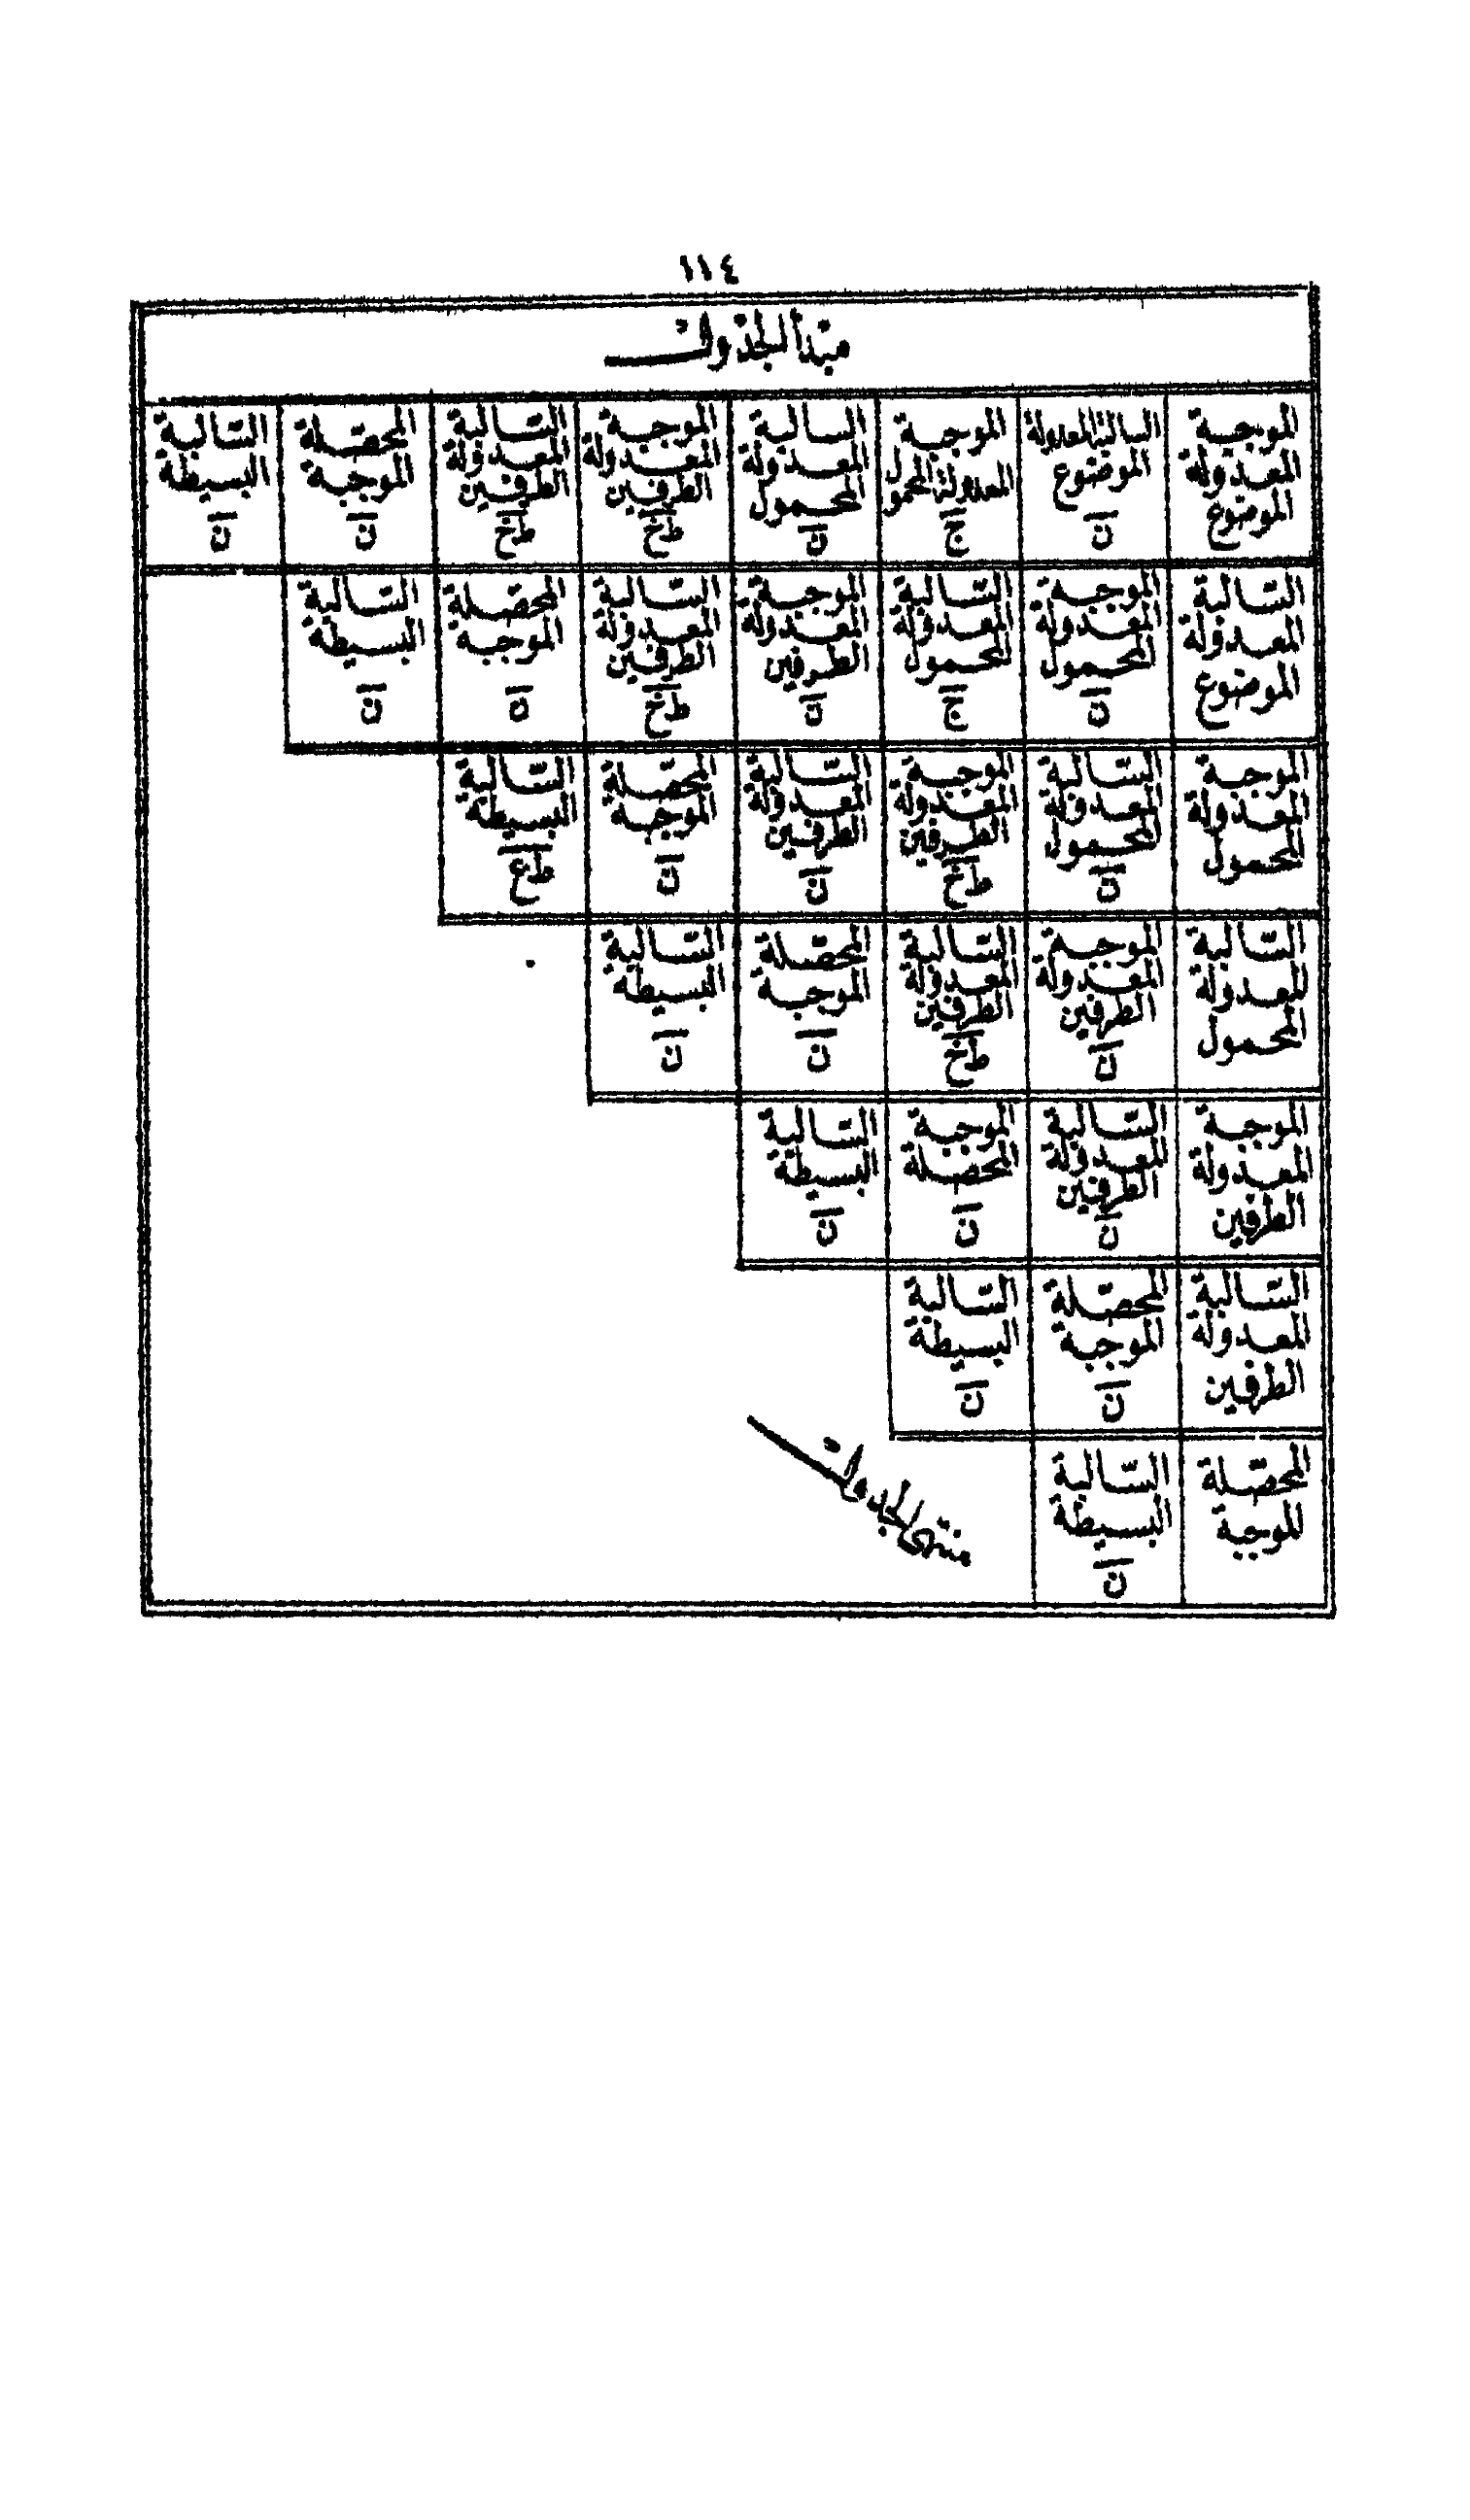 ١١٤
مبدأ الجدول
الموجبة المعدولة الموضوع
السالبة المعدولة الموضوع ن
الموجبة المعدولة المحمول ج
السالبة المعدولة المحمول ن
الموجبة المعدولة الطرفين طخ
السالبة المعدولة الطرفين طخ
المحصلة الموجبة ن
السالبة البسيطة ن
السالبة المعدولة الموضوع
الموجبة المعدولة المحمول ن
السالبة المعدولة المحمول ج
الموجبة المعدولة الطرفين ن
السالبة المعدولة الطرفين طخ
المحصلة الموجبة ن
السالبة البسيطة ن
الموجبة المعدولة المحمول
السالبة المعدولة المحمول ن
الموجبة المعدولة الطرفين طخ
السالبة المعدولة الطرفين ن
المحصلة الموجبة ن
السالبة البسيطة
السالبة المعدولة المحمول
الموجبة المعدولة الطرفين ن
السالبة المعدولة الطرفين طخ
المحصلة الموجبة ن
السالبة البسيطة ن
الموجبة المعدولة الطرفين
السالبة المعدولة الطرفين ن
الموجبة المحصلة ن
السالبة البسيطة ن
السالبة المعدولة الطرفين
المحصلة الموجبة ن
السالبة البسيطة ن
المحصلة الموجبة
السالبة البسيطة ن
منتهى الجدول